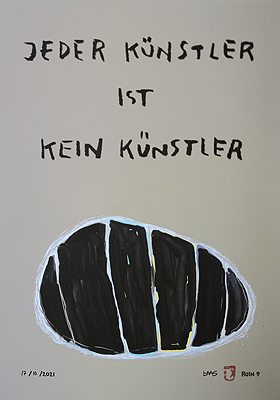 JEDER KÜNSTLER
IST
KEIN KÜNSTLER
17/10/2021
RUIN 9